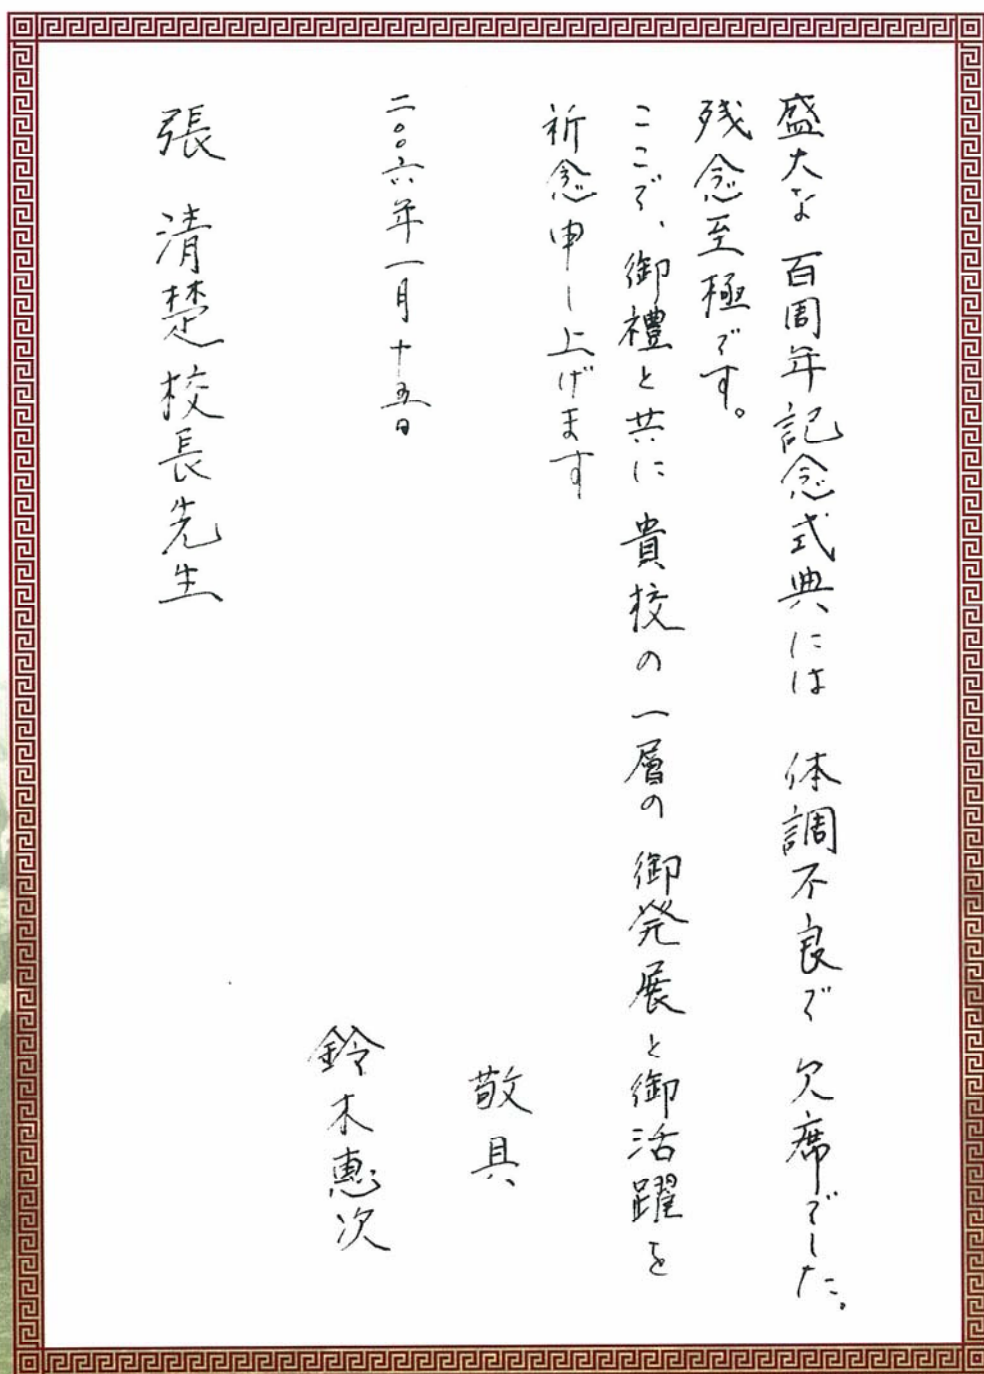 盛大な 百周年記念式典には 体調不良で 欠席でした。
残念至極です。
ここで、御禮と共に 貴校の一層の 御発展と御活躍を
祈念申し上げます
敬具
二〇〇六年一月十五日
鈴木惠次
張 清楚校長先生